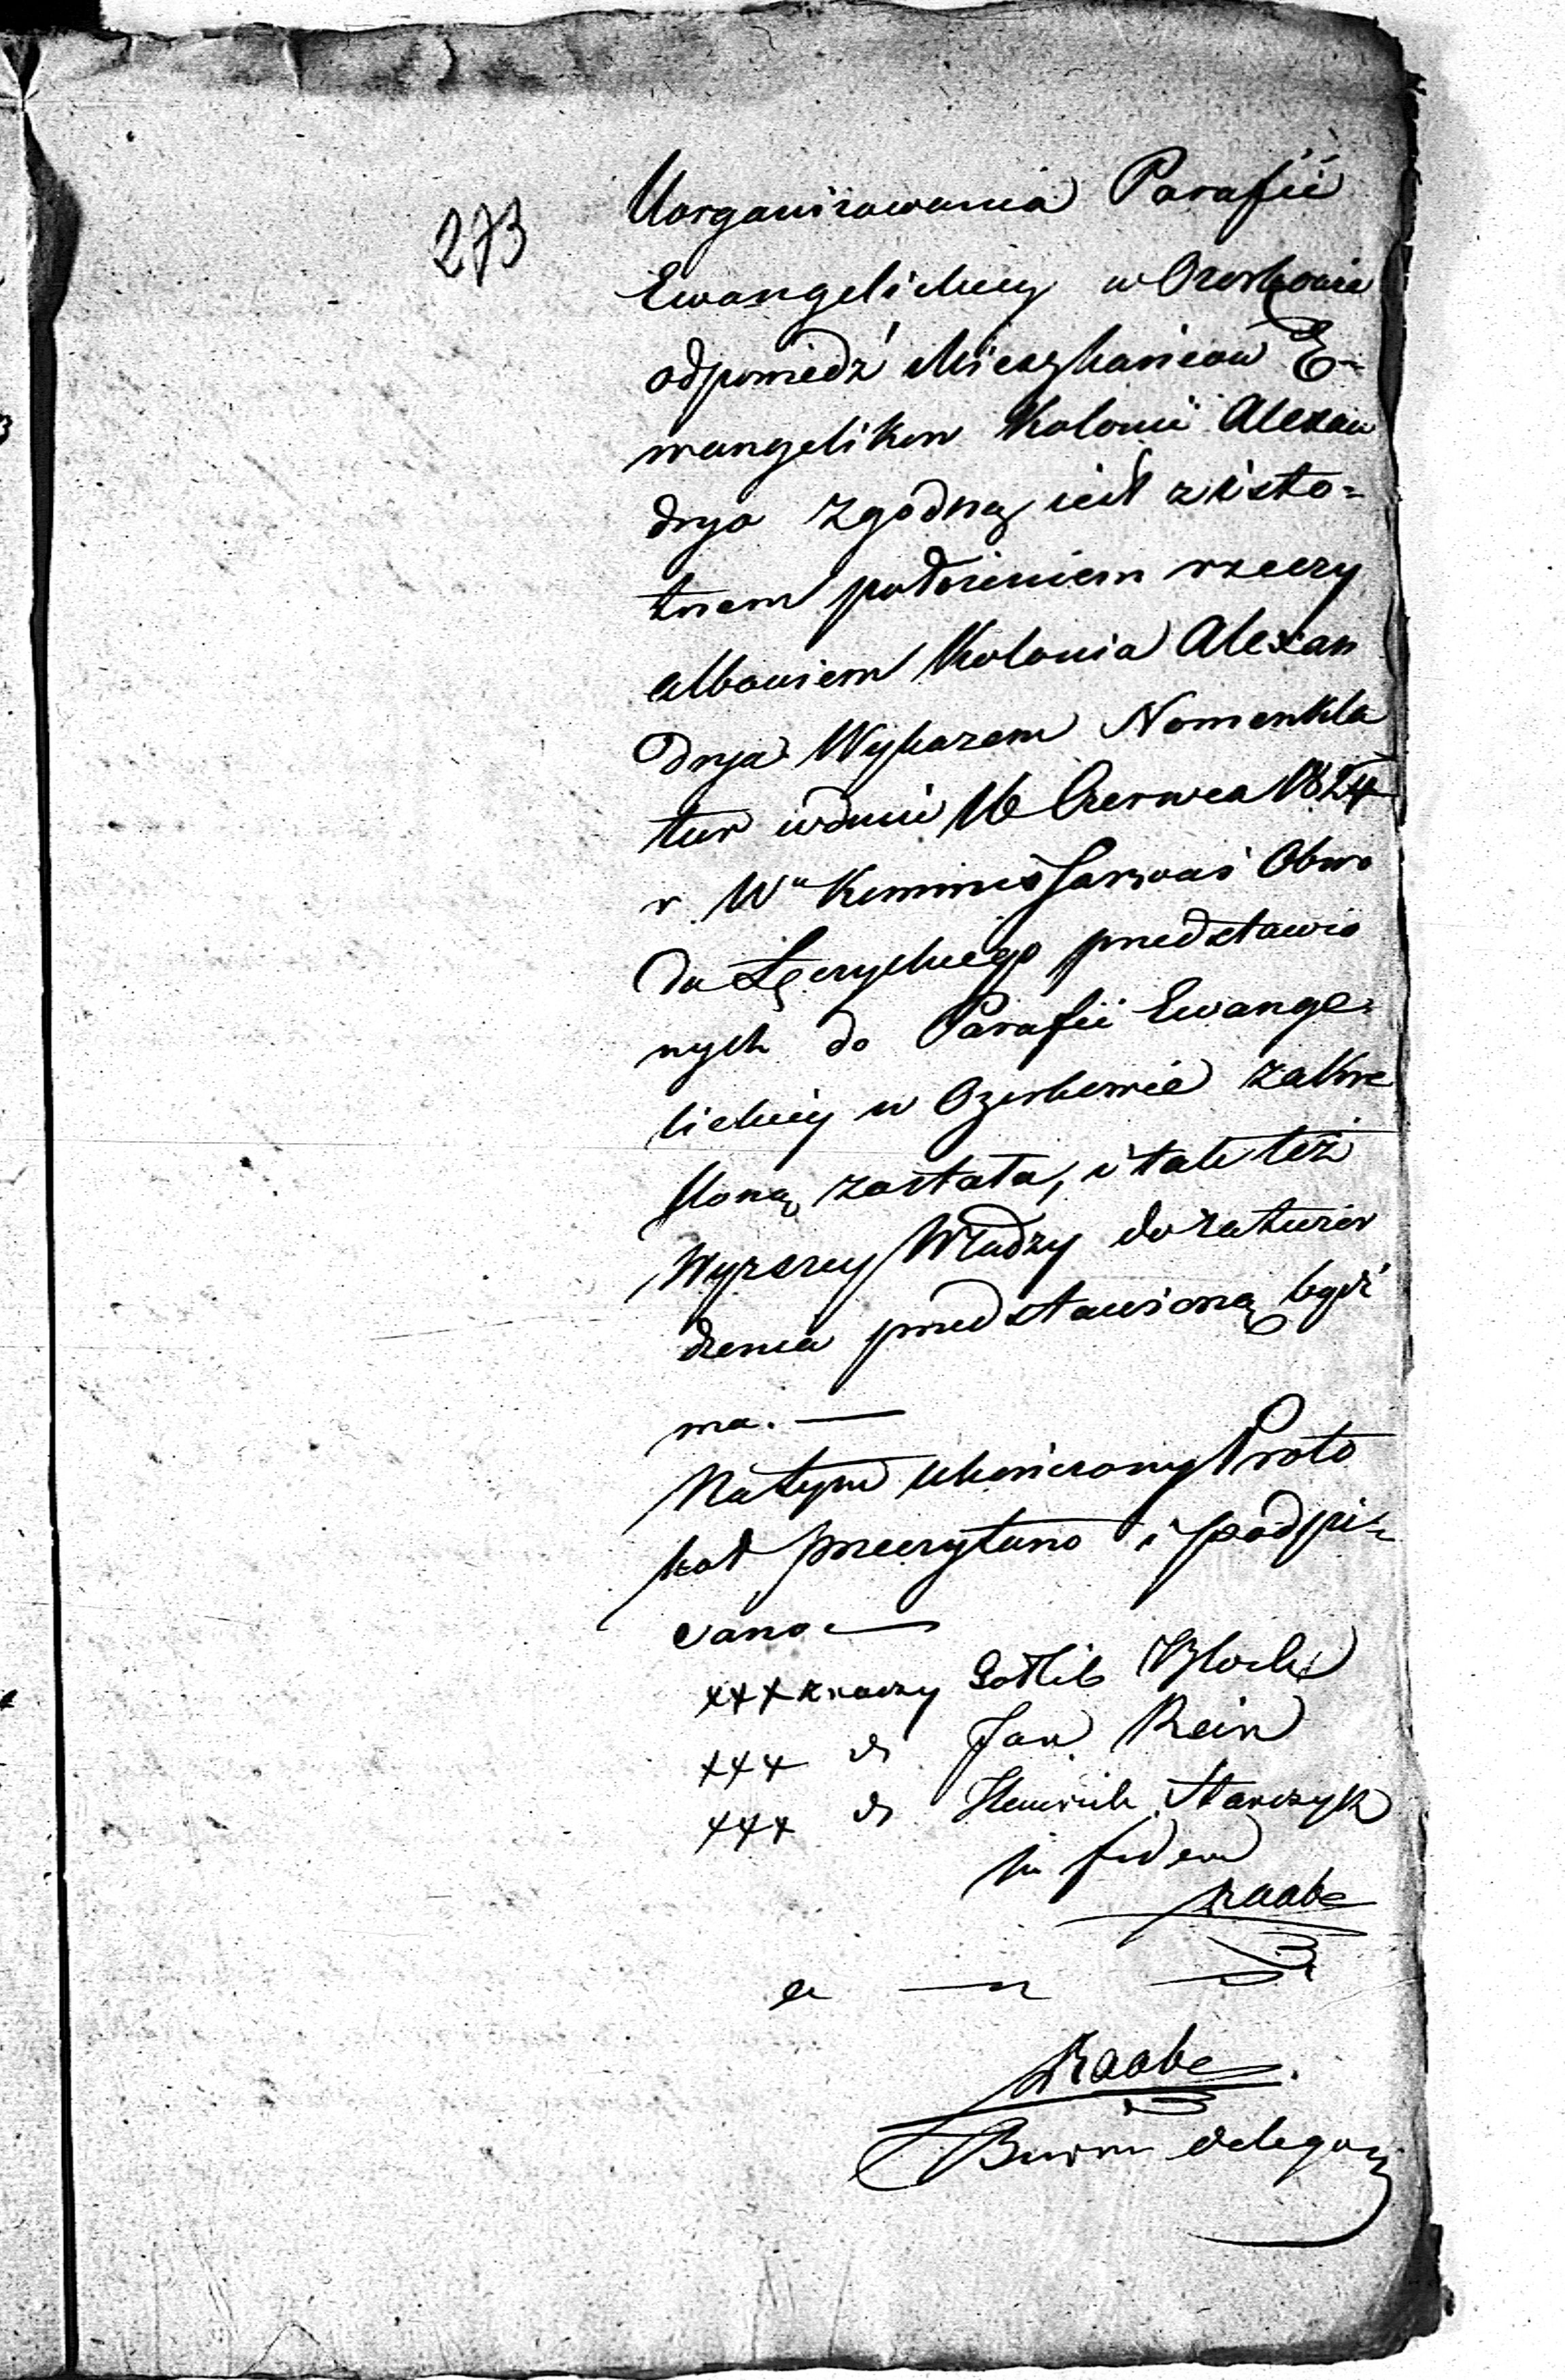 273
Uorganizowania Parafii
Ewangelickiey w Ozorkowie
odpowiedź Mieszkańców E-
wangelikow Kolonii Alexan
drya zgodną iest z isto=
tnem położeniem rzeczy
albowiem Kolonia Alexan
drya Wykazem Nomenkla
tur w dniu 16 Czerwca 1824
r. Wu Kommissarzowi Obwo
du Łęczyckiego przedstawio
nych do Parafii Ewange=
lickiey w Ozorkowie zakre
sloną została, i tak też
Wyzszey Władzy do zatwier
dzenia przedstawioną bydź
ma. —
Na tym ukończony Proto
koł przeczytano i podpi=
sano —
+++ znaczy Gotlib Block
+++ dt Jan Rein
+++ dt Henrich Starczyk
in fidem
Raabe
Raabe
Burm delegow